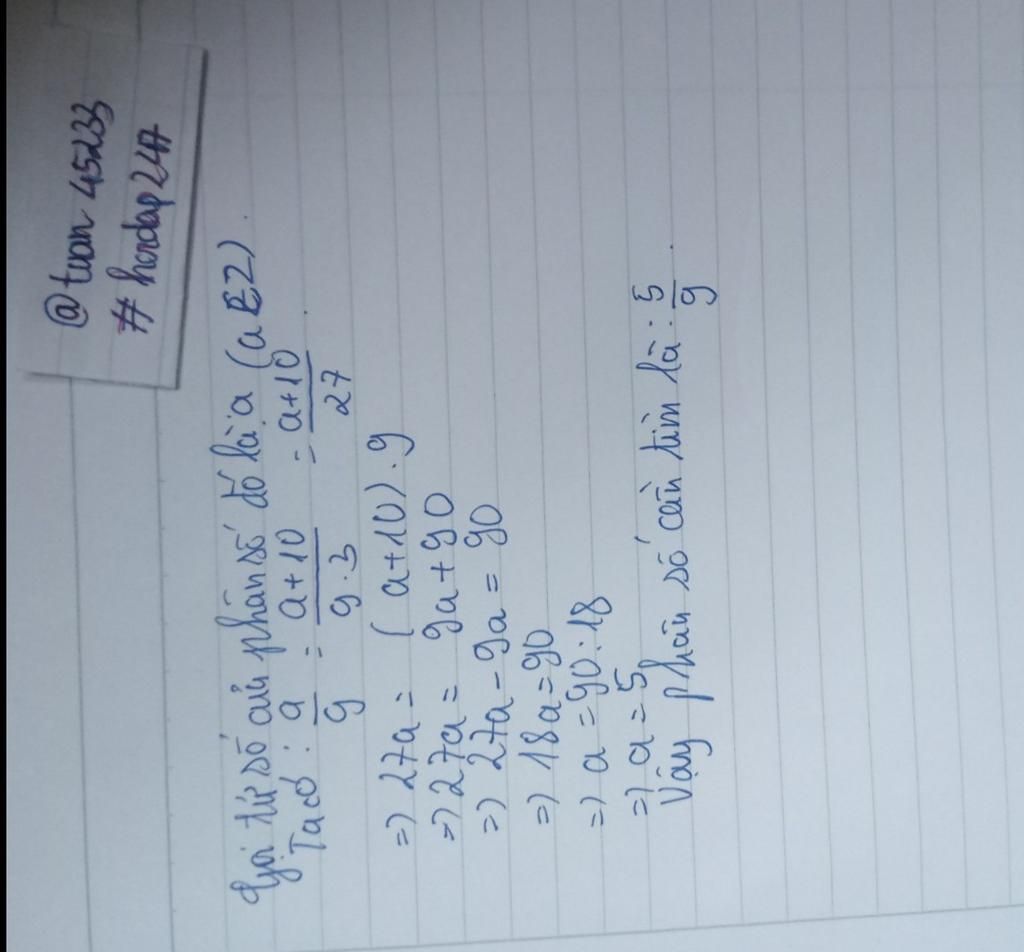 @tuan 45233
# hoidap247
Gọi tử số của phân số đó là a (a ∈ Z).
Ta có: a/9 = a+10/9.3 = a+10/27.
=> 27a = (a+10).9
=> 27a = 9a+90
=> 27a-9a = 90
=> 18a=90
=> a = 90:18
=> a = 5
Vậy phân số cần tìm là: 5/9.